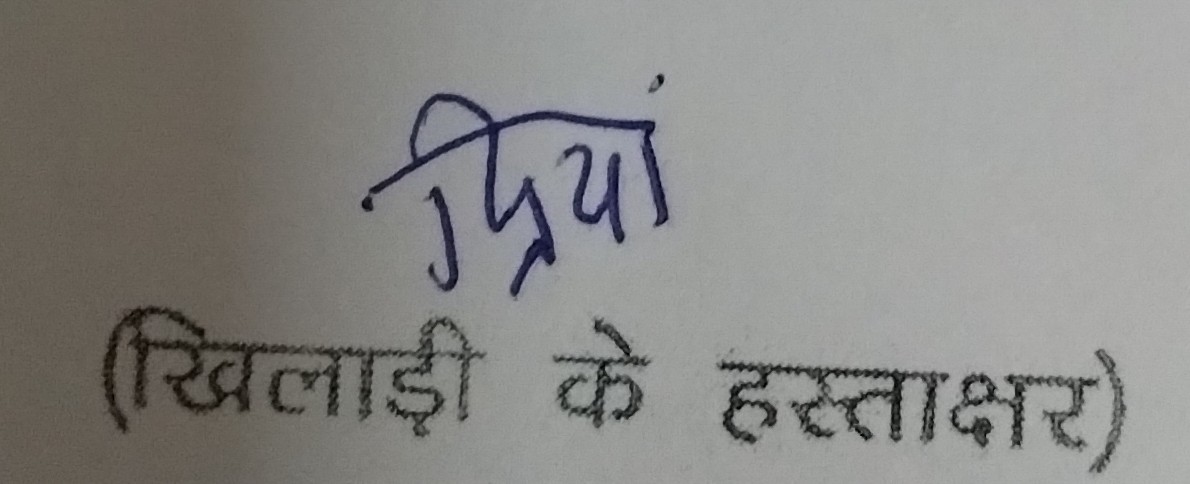 प्रियां
(खिलाड़ी के हस्ताक्षर)